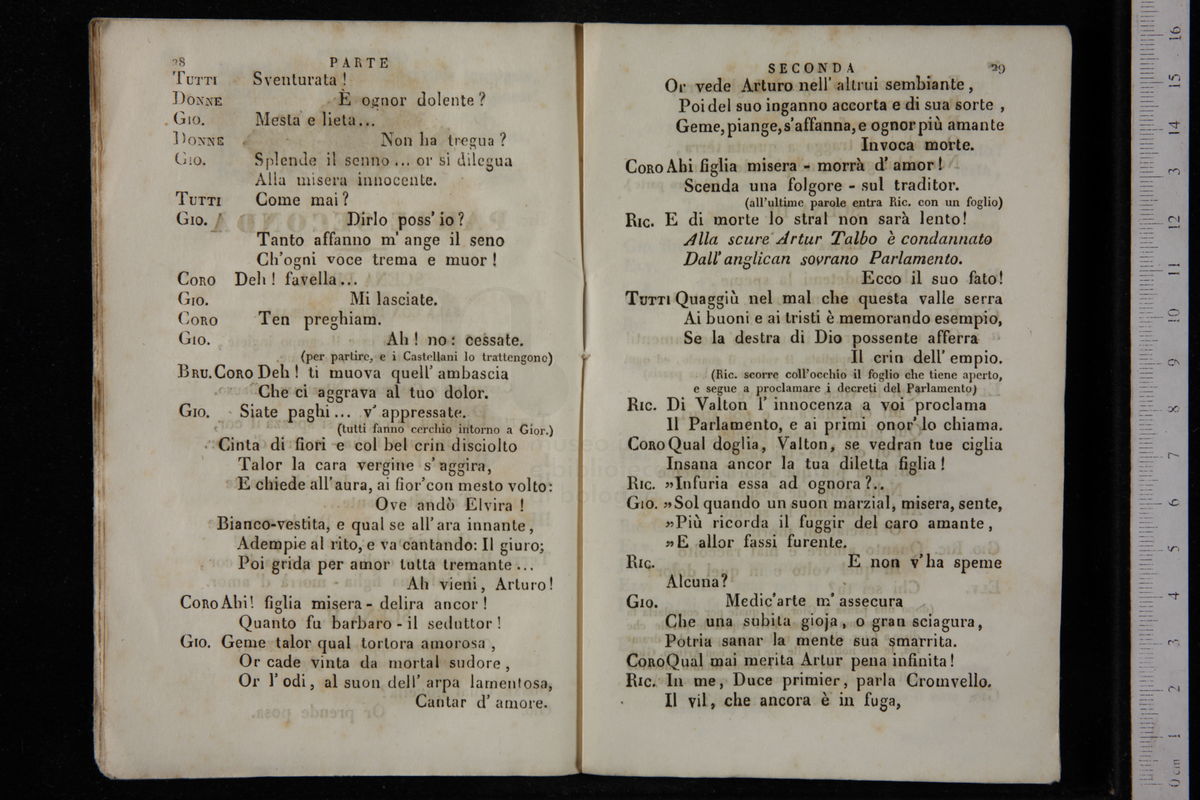 28 PARTE
TUTTI Sventurata !
DONNE È ognor dolente ?
GIO. Mesta e lieta...
DONNE Non ha tregua ?
GIO. Splende il senno ... or si dilegua
Alla misera innocente.
TUTTI Come mai ?
GIO. Dirlo poss' io ?
Tanto affanno m' ange il seno
Ch'ogni voce trema e muor !
CORO Deh ! favella...
GIO. Mi lasciate.
CORO Ten preghiam.
GIO. Ah ! no : cessate.
(per partire, e i Castellani lo trattengono)
BRU. CORO Deh ! ti muova quell' ambascia
Che ci aggrava al tuo dolor.
GIO. Siate paghi ... v' appressate.
(tutti fanno cerchio intorno a Gior.)
Cinta di fiori e col bel crin disciolto
Talor la cara vergine s' aggira,
E chiede all'aura, ai fior'con mesto volto:
Ove andò Elvira !
Bianco-vestita, e qual se all' ara innante,
Adempie al rito, e va cantando: Il giuro;
Poi grida per amor tutta tremante ...
Ah vieni, Arturo!
CORO Ahi! figlia misera - delira ancor !
Quanto fu barbaro - il seduttor !
GIO. Geme talor qual tortora amorosa ,
Or cade vinta da mortal sudore ,
Or l' odi, al suon dell' arpa lamentosa,
Cantar d' amore.
SECONDA 29
Or vede Arturo nell' altrui sembiante ,
Poi del suo inganno accorta e di sua sorte ,
Geme, piange, s'affanna, e ognor più amante
Invoca morte.
CORO Ahi figlia misera - morrà d' amor !
Scenda una folgore - sul traditor.
(all'ultime parole entra Ric. con un foglio)
RIC. E di morte lo stral non sarà lento!
Alla scure Artur Talbo è condannato
Dall' anglican sovrano Parlamento.
Ecco il suo fato!
TUTTI Quaggiù nel mal che questa valle serra
Ai buoni e ai tristi è memorando esempio,
Se la destra di Dio possente afferra
Il crin dell' empio.
(Ric. scorre coll'occhio il foglio che tiene aperto,
e segue a proclamare i decreti del Parlamento)
RIC. Di Valton l' innocenza a voi proclama
Il Parlamento, e ai primi onor' lo chiama.
CORO Qual doglia, Valton, se vedran tue ciglia
Insana ancor la tua diletta figlia !
RIC. »Infuria essa ad ognora ?..
GIO. »Sol quando un suon marzial, misera, sente,
»Più ricorda il fuggir del caro amante ,
»E allor fassi furente.
RIC. E non v'ha speme
Alcuna ?
GIO. Medic'arte m' assecura
Che una subita gioja, o gran sciagura,
Potria sanar la mente sua smarrita.
CORO Qual mai merita Artur pena infinita !
RIC. In me, Duce primier, parla Cromvello.
Il vil, che ancora è in fuga,